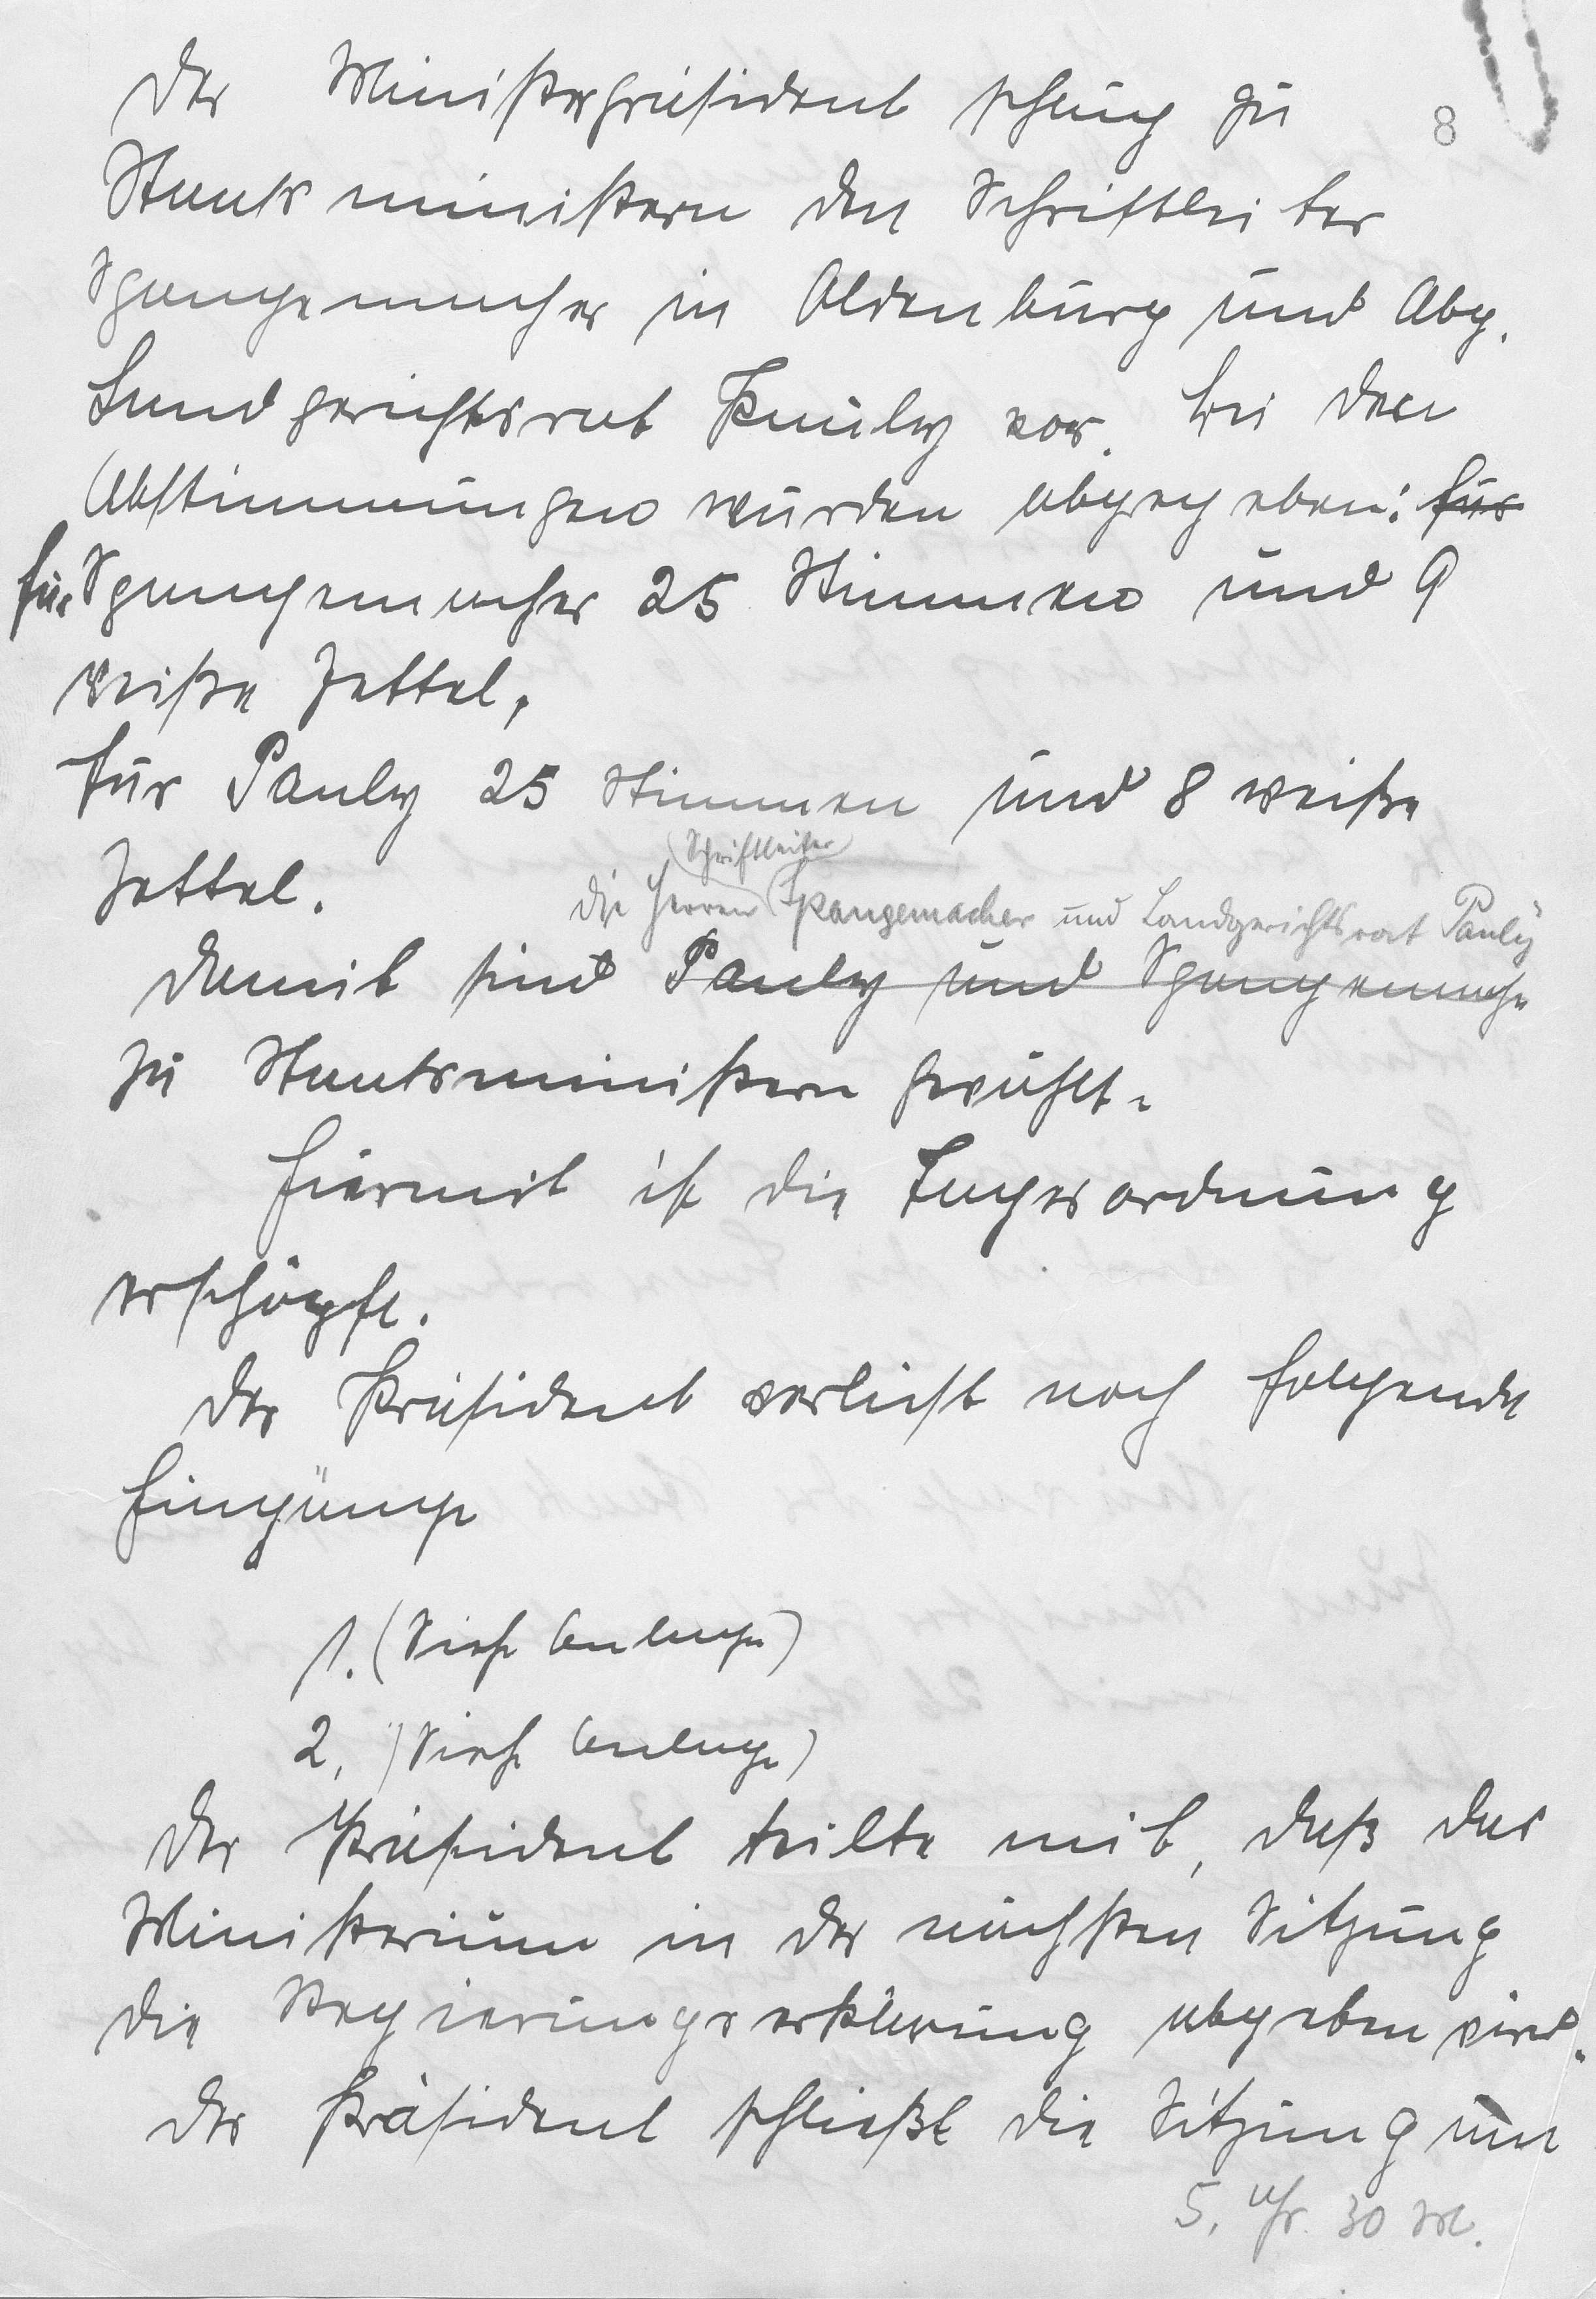 8
Der Ministerpräsident schlug zu
Staatsministern den Schriftleiter
Spangemacher in Oldenburg und Abg.
Landgerichtsrat Pauly vor. Bei den
Abstimmungen wurden abgegeben: für
für Spangemacher 25 Stimmen und 9
weiße Zettel,
für Pauly 25 Stimmen und 8 weiße
Zettel.
Schriftleiter
die Herren Spangemacher und Landgerichtsrat Pauly
Damit sind Pauly und Spangemacher
zu Staatsministern gewählt.
Hiermit ist die Tagesordnung
erschöpft.
Der Präsident verliest noch folgende
Eingänge
1. (Siehe Anlage)
2. (Siehe Anlage)
Der Präsident teilte mit, daß das
Ministerium in der nächsten Sitzung
die Regierungserklärung abgeben wird.
Der Präsident schließt die Sitzung um
5. Uhr 30 M.